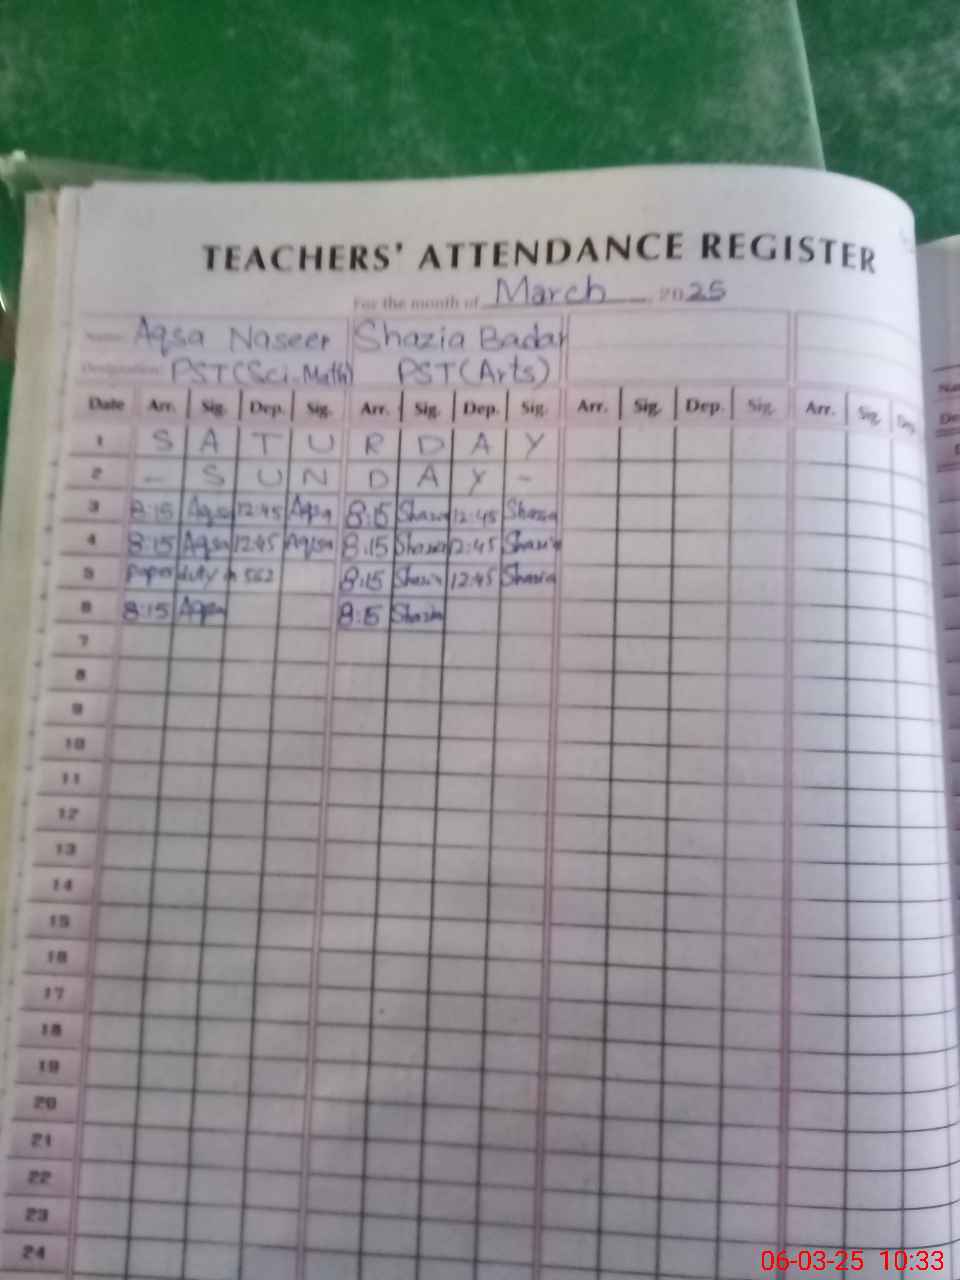 TEACHERS' ATTENDANCE REGISTER
For the month of March 2025
Name: Aqsa Naseer Shazia Badar
Designation: PST(Sci.Math) PST(Arts)
Date Arr. Sig. Dep. Sig. Arr. Sig. Dep. Sig. Arr. Sig. Dep. Sig. Arr. Sig. Dep.
1 S A T U R D A Y
2 - S U N D A Y -
3 8:15 Aqsa 12:45 Aqsa 8:15 Shazia 12:45 Shazia
4 8:15 Aqsa 12:45 Aqsa 8:15 Shazia 12:45 Shazia
5 Paper duty in 562 8:15 Shazia 12:45 Shazia
6 8:15 Aqsa 8:15 Shazia
7
8
9
10
11
12
13
14
15
16
17
18
19
20
21
22
23
24
06-03-25 10:33